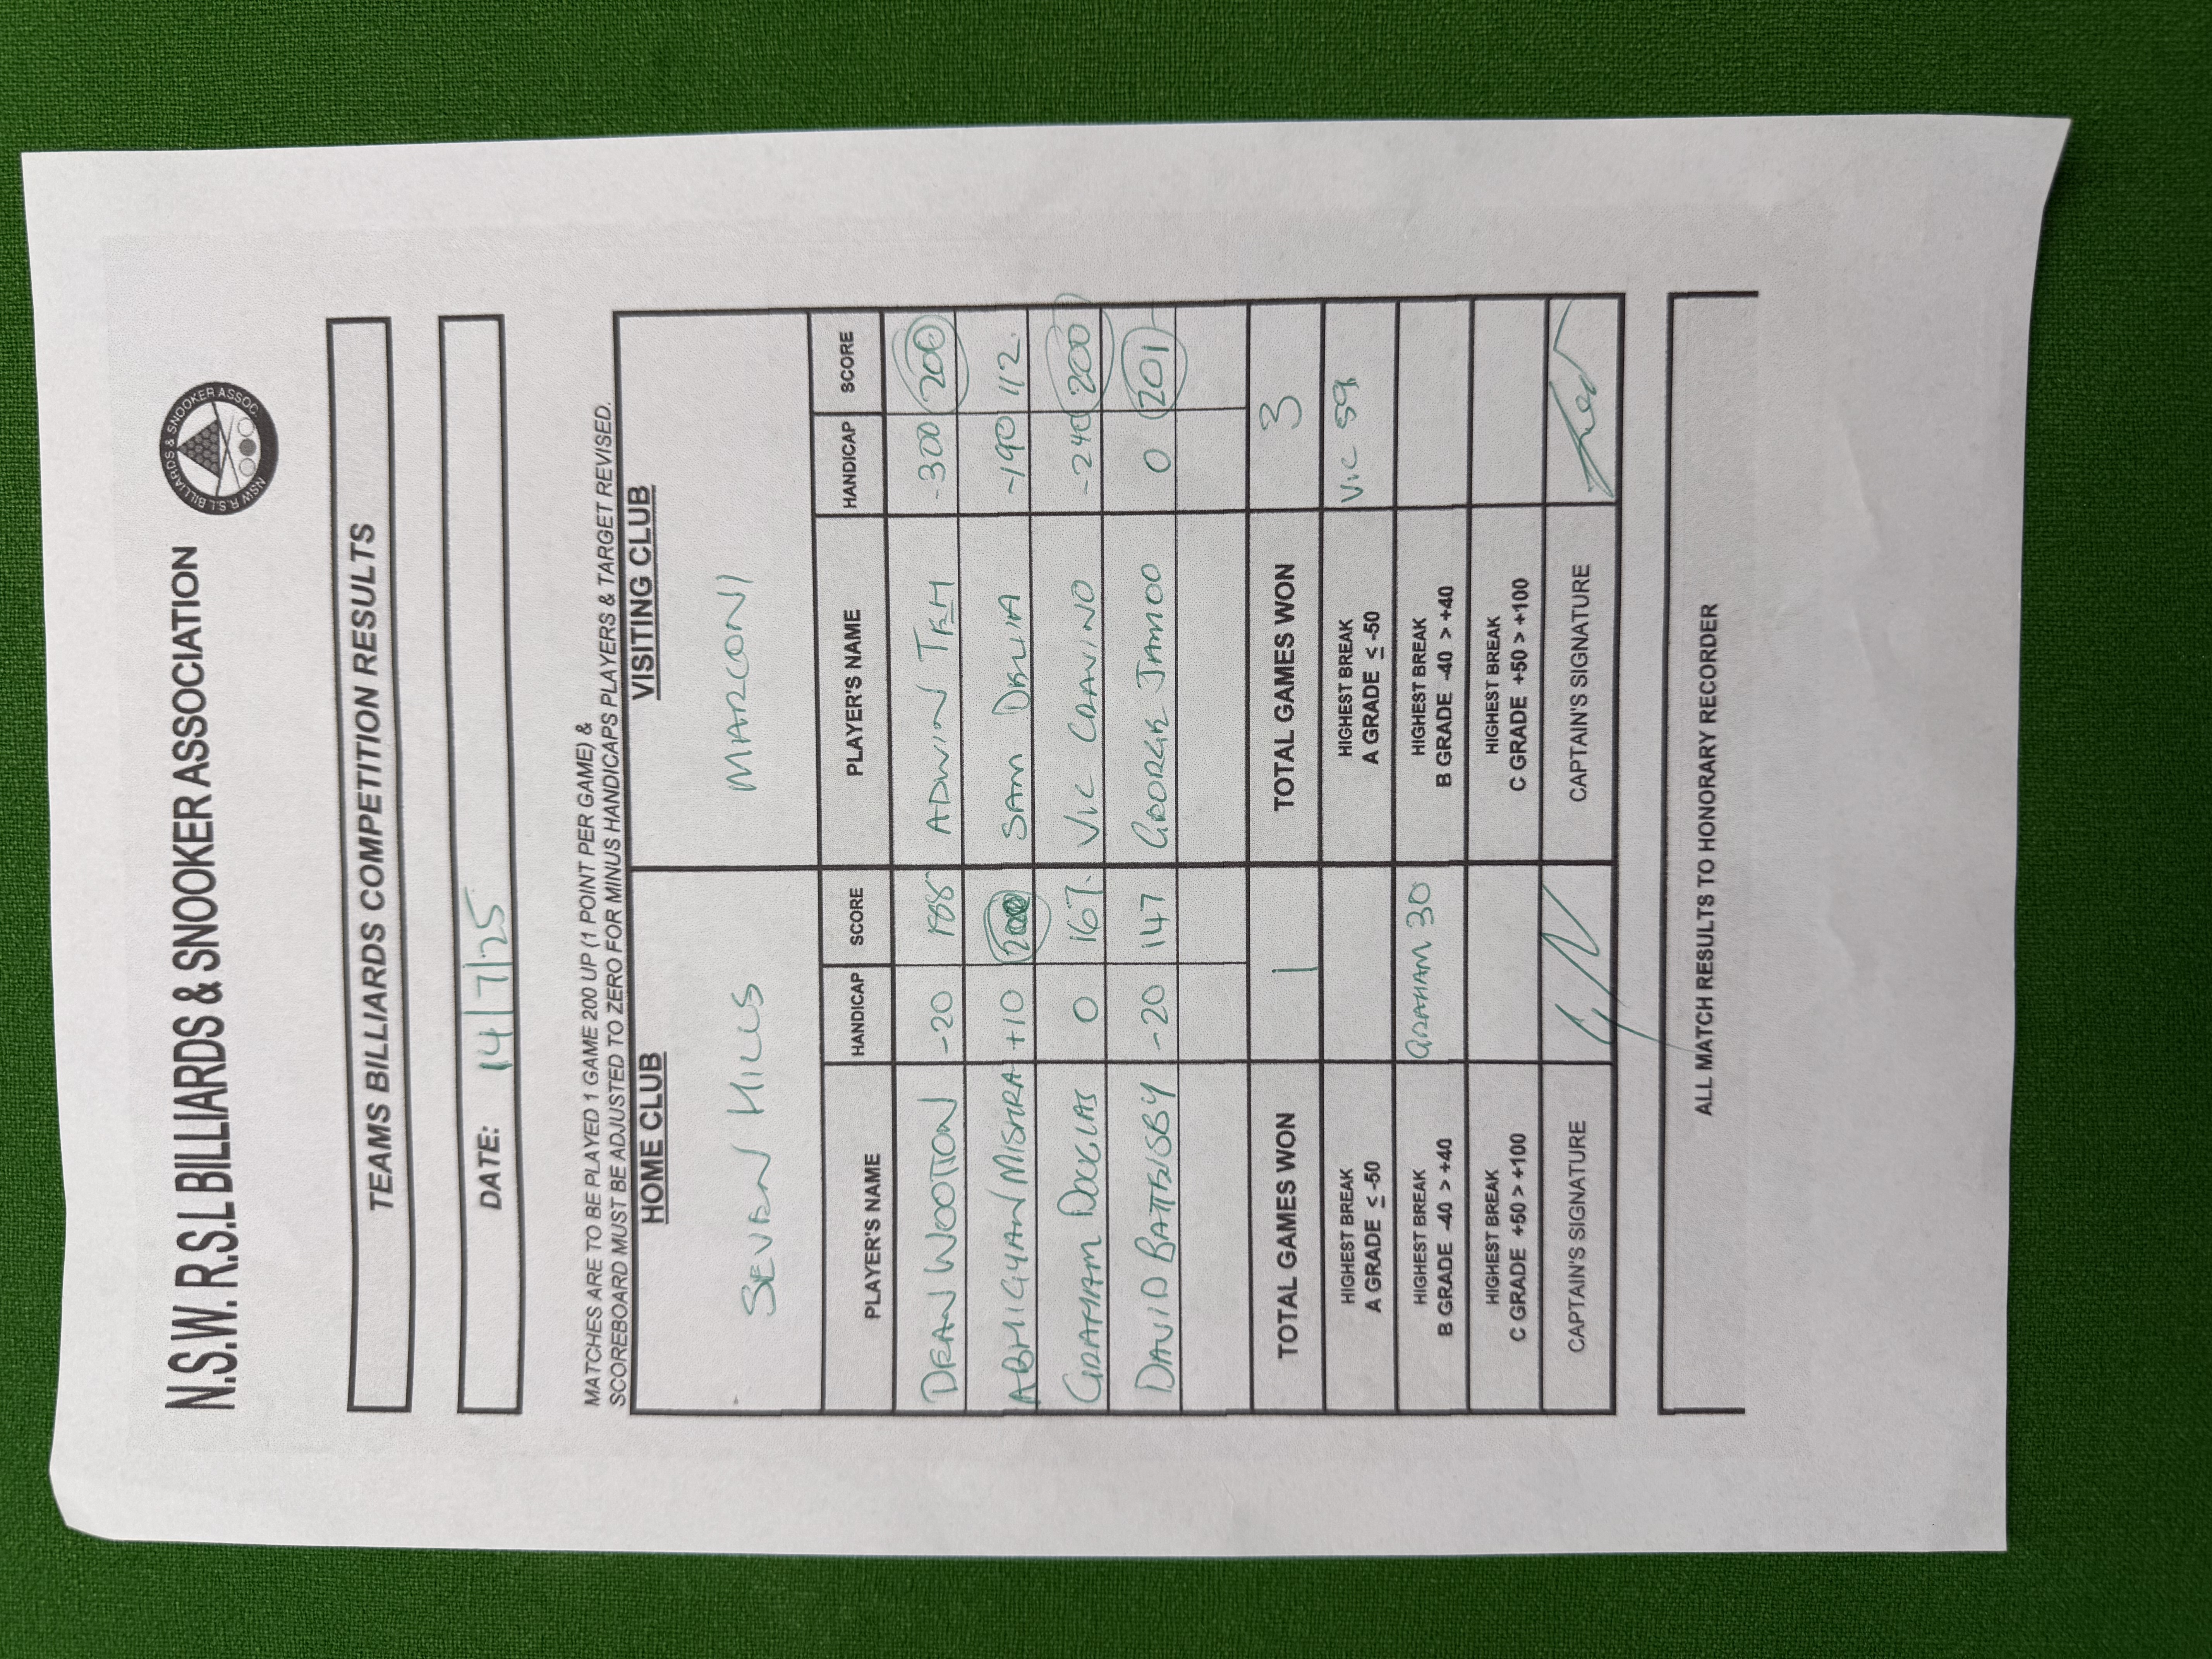 N.S.W. R.S.L BILLIARDS & SNOOKER ASSOCIATION
NSW R.S.L BILLIARDS & SNOOKER ASSOC.
TEAMS BILLIARDS COMPETITION RESULTS
DATE: 14/7/25
MATCHES ARE TO BE PLAYED 1 GAME 200 UP (1 POINT PER GAME) &
SCOREBOARD MUST BE ADJUSTED TO ZERO FOR MINUS HANDICAPS PLAYERS & TARGET REVISED.
HOME CLUB VISITING CLUB
SEVEN HILLS MARCONI
PLAYER'S NAME HANDICAP SCORE PLAYER'S NAME HANDICAP SCORE
DEAN WOOTTON -20 188 ADWIN TEH -300 200
ABHIGYAN MISHRA +10 200 SAM DELIA -190 112
GRAHAM DOUGLAS 0 167 VIC CRAVINO -240 200
DAVID BATTISBY -20 147 GEORGE JAMOO 0 201
TOTAL GAMES WON 1 TOTAL GAMES WON 3
HIGHEST BREAK A GRADE ≤ -50 HIGHEST BREAK A GRADE ≤ -50 VIC 59
HIGHEST BREAK B GRADE -40 > +40 GRAHAM 30 HIGHEST BREAK B GRADE -40 > +40
HIGHEST BREAK C GRADE +50 > +100 HIGHEST BREAK C GRADE +50 > +100
CAPTAIN'S SIGNATURE CAPTAIN'S SIGNATURE
ALL MATCH RESULTS TO HONORARY RECORDER